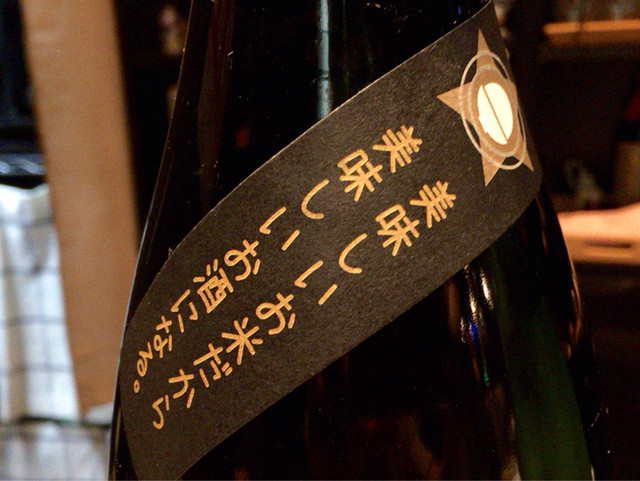 美味しいお米だから
美味しいお酒になる。